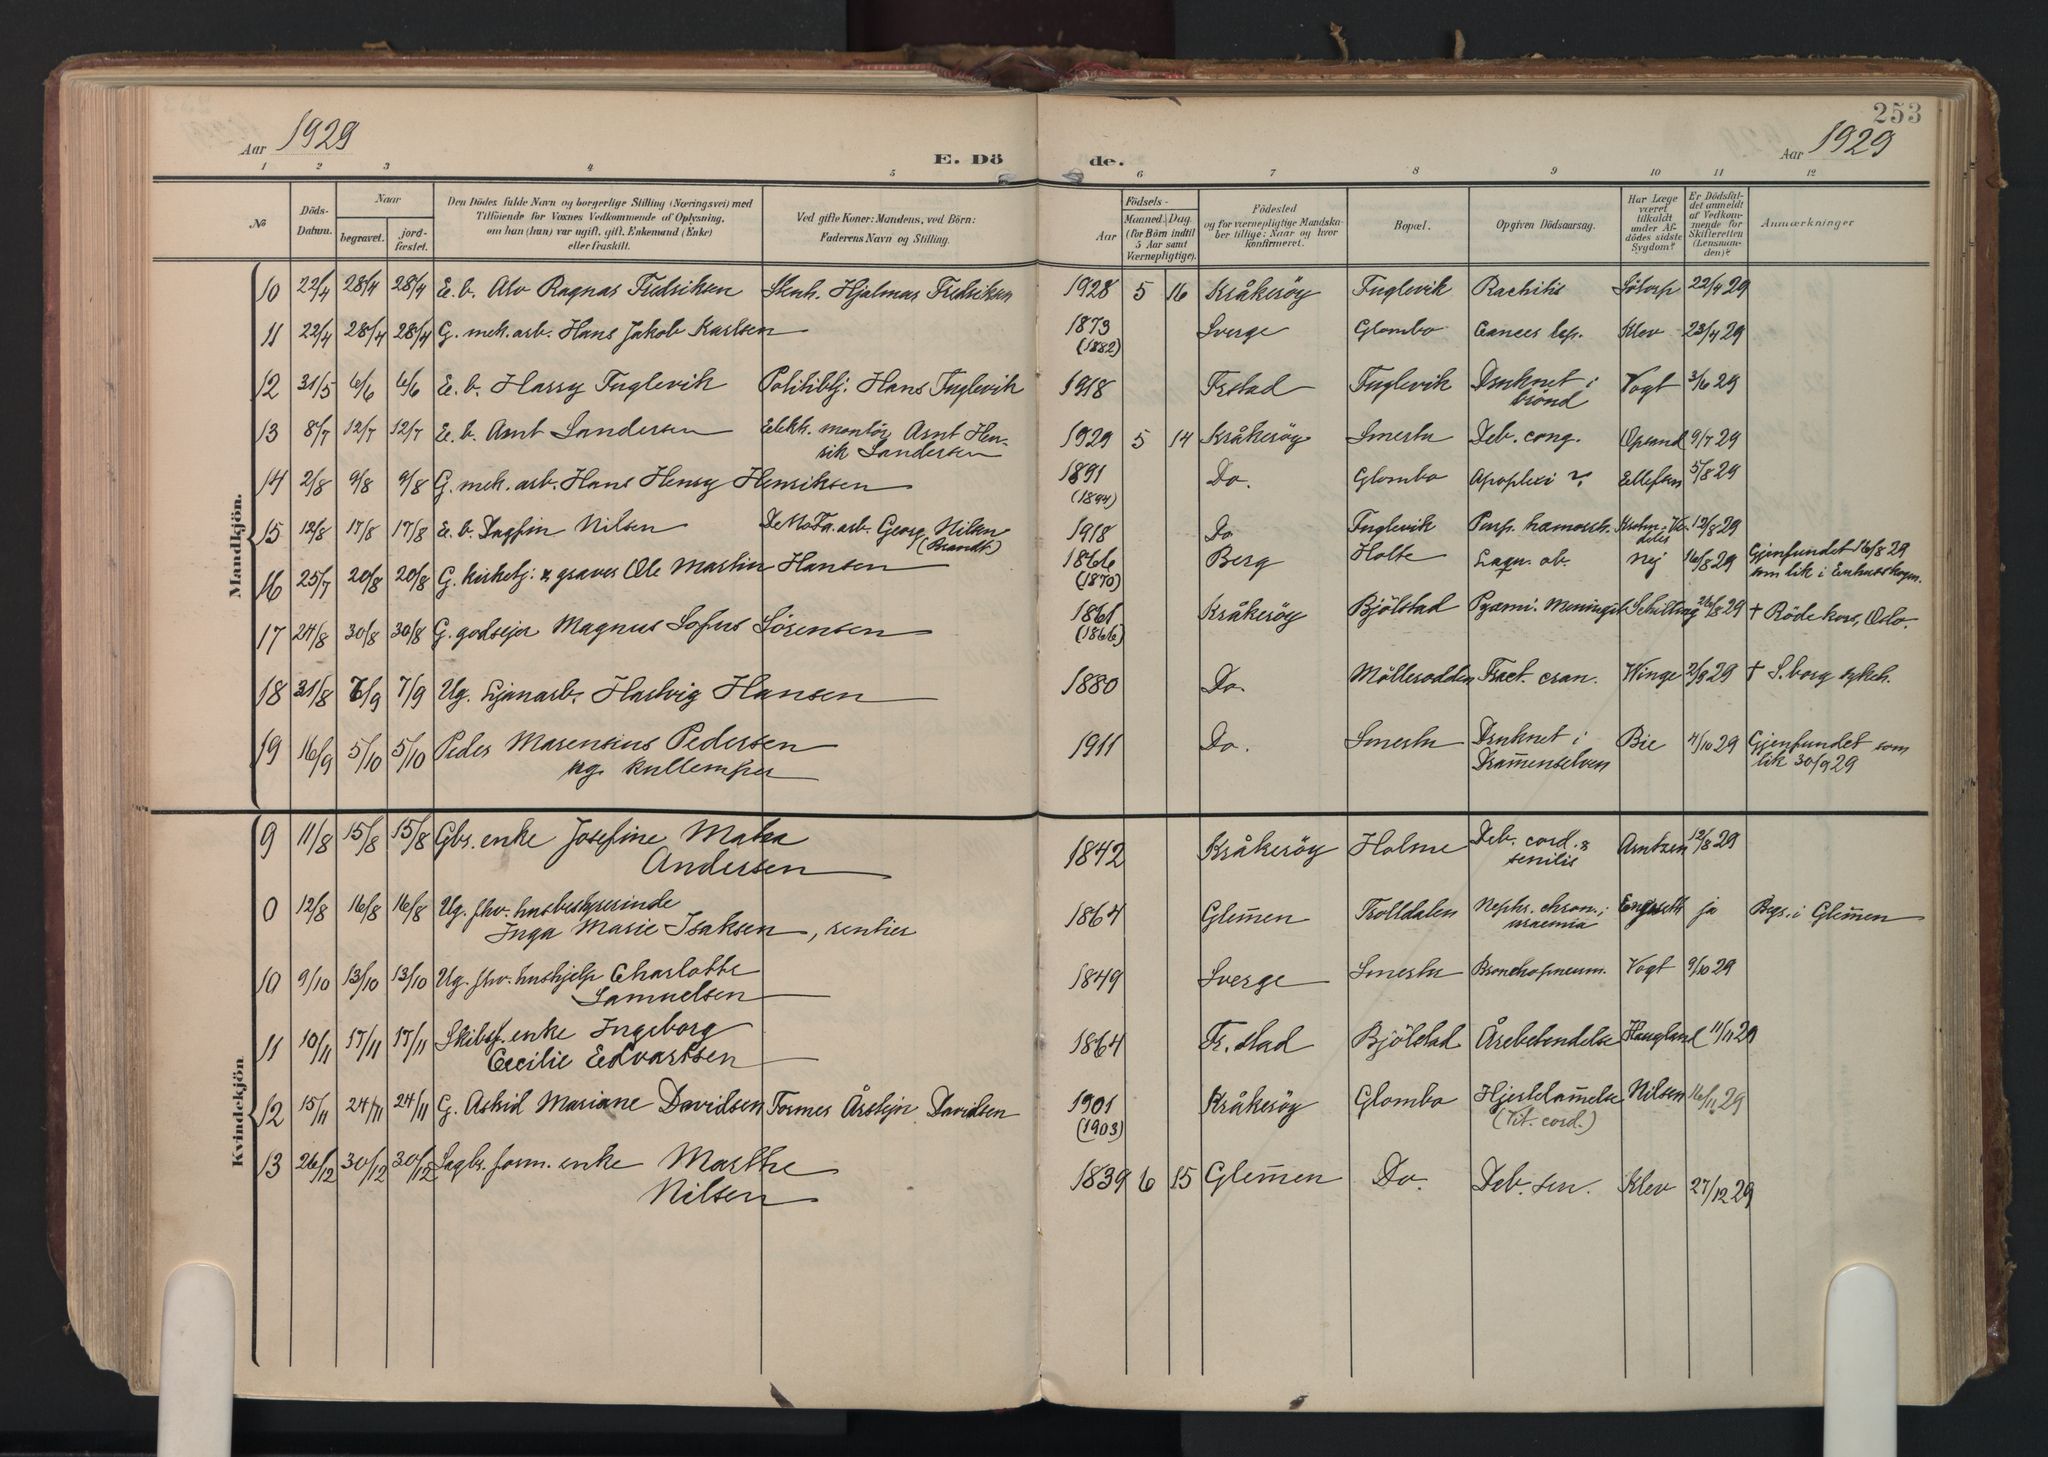 253
Aar 1929
E. Dö
de.
Aar 1929
1 2 3 4 5 6 7 8 9 10 11 12
No
Döds-Datum.
Naar
begravet.
jord-fæstet.
Den Dödes fulde Navn og borgerlige Stilling (Næringsvei) med
Tilföiende for Voxnes Vedkommende af Oplysning,
om han (hun) var ugift, gift, Enkemand (Enke)
eller fraskilt.
Ved gifte Koner: Mandens, ved Börn:
Faderens Navn og Stilling.
Födsels-
Aar
Maaned. Dag.
(for Börn indtil
5 Aar samt
Værnepligtige).
Födested
og for værnepligtige Mandska-
ber tillige: Naar og hvor
konfirmeret.
Bopæl.
Opgiven Dödsaarsag.
Har Læge
været
tilkaldt
under Af-
dödes sidste
Sygdom?
Er Dödsfal-
det anmeldt
af Vedkom-
mende for
Skifteretten
(Lensman-
den)?
Anmærkninger
Mandkjön.
10 22/4 28/4 28/4 E. b. Alv Ragnar Fredriksen Hjalmar Fredriksen 1928 5 16 Kråkeröy Fuglevik Rachitis 22/4 29
11 22/4 28/4 28/4 G. mek. arb. Hans Jakob Karlsen 1873 Sverge Glombo Cancer hep. Klev 23/4 29
(1882)
12 31/5 6/6 6/6 E. b. Harry Fuglevik Politibtj. Hans Fuglevik 1918 Frstad Fuglevik Druknet i Vogt 3/6 29
brönd
13 8/7 12/7 12/7 E. b. Arnt Sandersen Elekk. montör Arnt Hen- 1929 5 14 Kråkeröy Smertu Deb. cong. Opsand 9/7 29
rik Sandersen
14 2/8 9/8 9/8 G. mek. arb. Hans Henry Henriksen 1891 Do. Glombo Apoplexi ? Ellefsen 5/8 29
(1894)
15 12/8 17/8 17/8 E. b. Dagfin Nilsen arb. Georg Nilsen 1918 Do Fuglevik 12/8 29
(Brandt)
16 25/7 20/8 20/8 G. kirketj: & graver Ole Martin Hansen 1866 Berg Holte nej 16/8 29 Gjenfundet 16/8 29
(1870) som lik i
17 24/8 30/8 30/8 G. godsejer Magnus Sofus Sörensen 1861 Kråkeröy Bjölstad Pyæmi. Meningit. Schilling 26/8 29 † Röde kors, Oslo.
(1866)
18 31/8 7/9 7/9 Ug. Hartvig Hansen 1880 Do. Möllerodden Fract. cran. Winge 2/9 29 † S.borg sykeh.
19 16/9 5/10 5/10 Peder Marensius Pedersen 1911 Do. Smertu Druknet i Bie 4/10 29 Gjenfundet som
ug. kullemper Dramenselven lik 30/9 29
Kvindekjön
9 11/8 15/8 15/8 Gbr. enke Josefine Matea 1842 Kråkeröy Holme Deb. cord. & Arntzen 12/8 29
Andersen senilis
0 12/8 16/8 16/8 Ug. fhv. husbestyrerinde 1864 Glemen Trolldalen Nephr. chron.; Engseth ja Begr. i Glemen
Inga Marie Isaksen, rentier uraemia
10 9/10 13/10 13/10 Ug. fhv. hushjelp Charlotte 1849 Sverge Smertu Bronchopneum. Vogt 9/10 29
Samuelsen
11 10/11 17/11 17/11 Skibsf. enke Ingeborg 1864 Fr. stad Bjölstad Årebetendelse Haugland 11/11 29
Cecilie Edvartsen
12 15/11 24/11 24/11 G. Astrid Mariane Davidsen Former Årstejn Davidsen 1901 Kråkeröy Glombo Hjertelamelse Nilsen 16/11 29
(1903) (Vit. cord.)
13 26/12 30/12 30/12 Sagbr. form. enke Marthe 1839 6 15 Glemen Do. Deb. sen. Klev 27/12 29
Nilsen